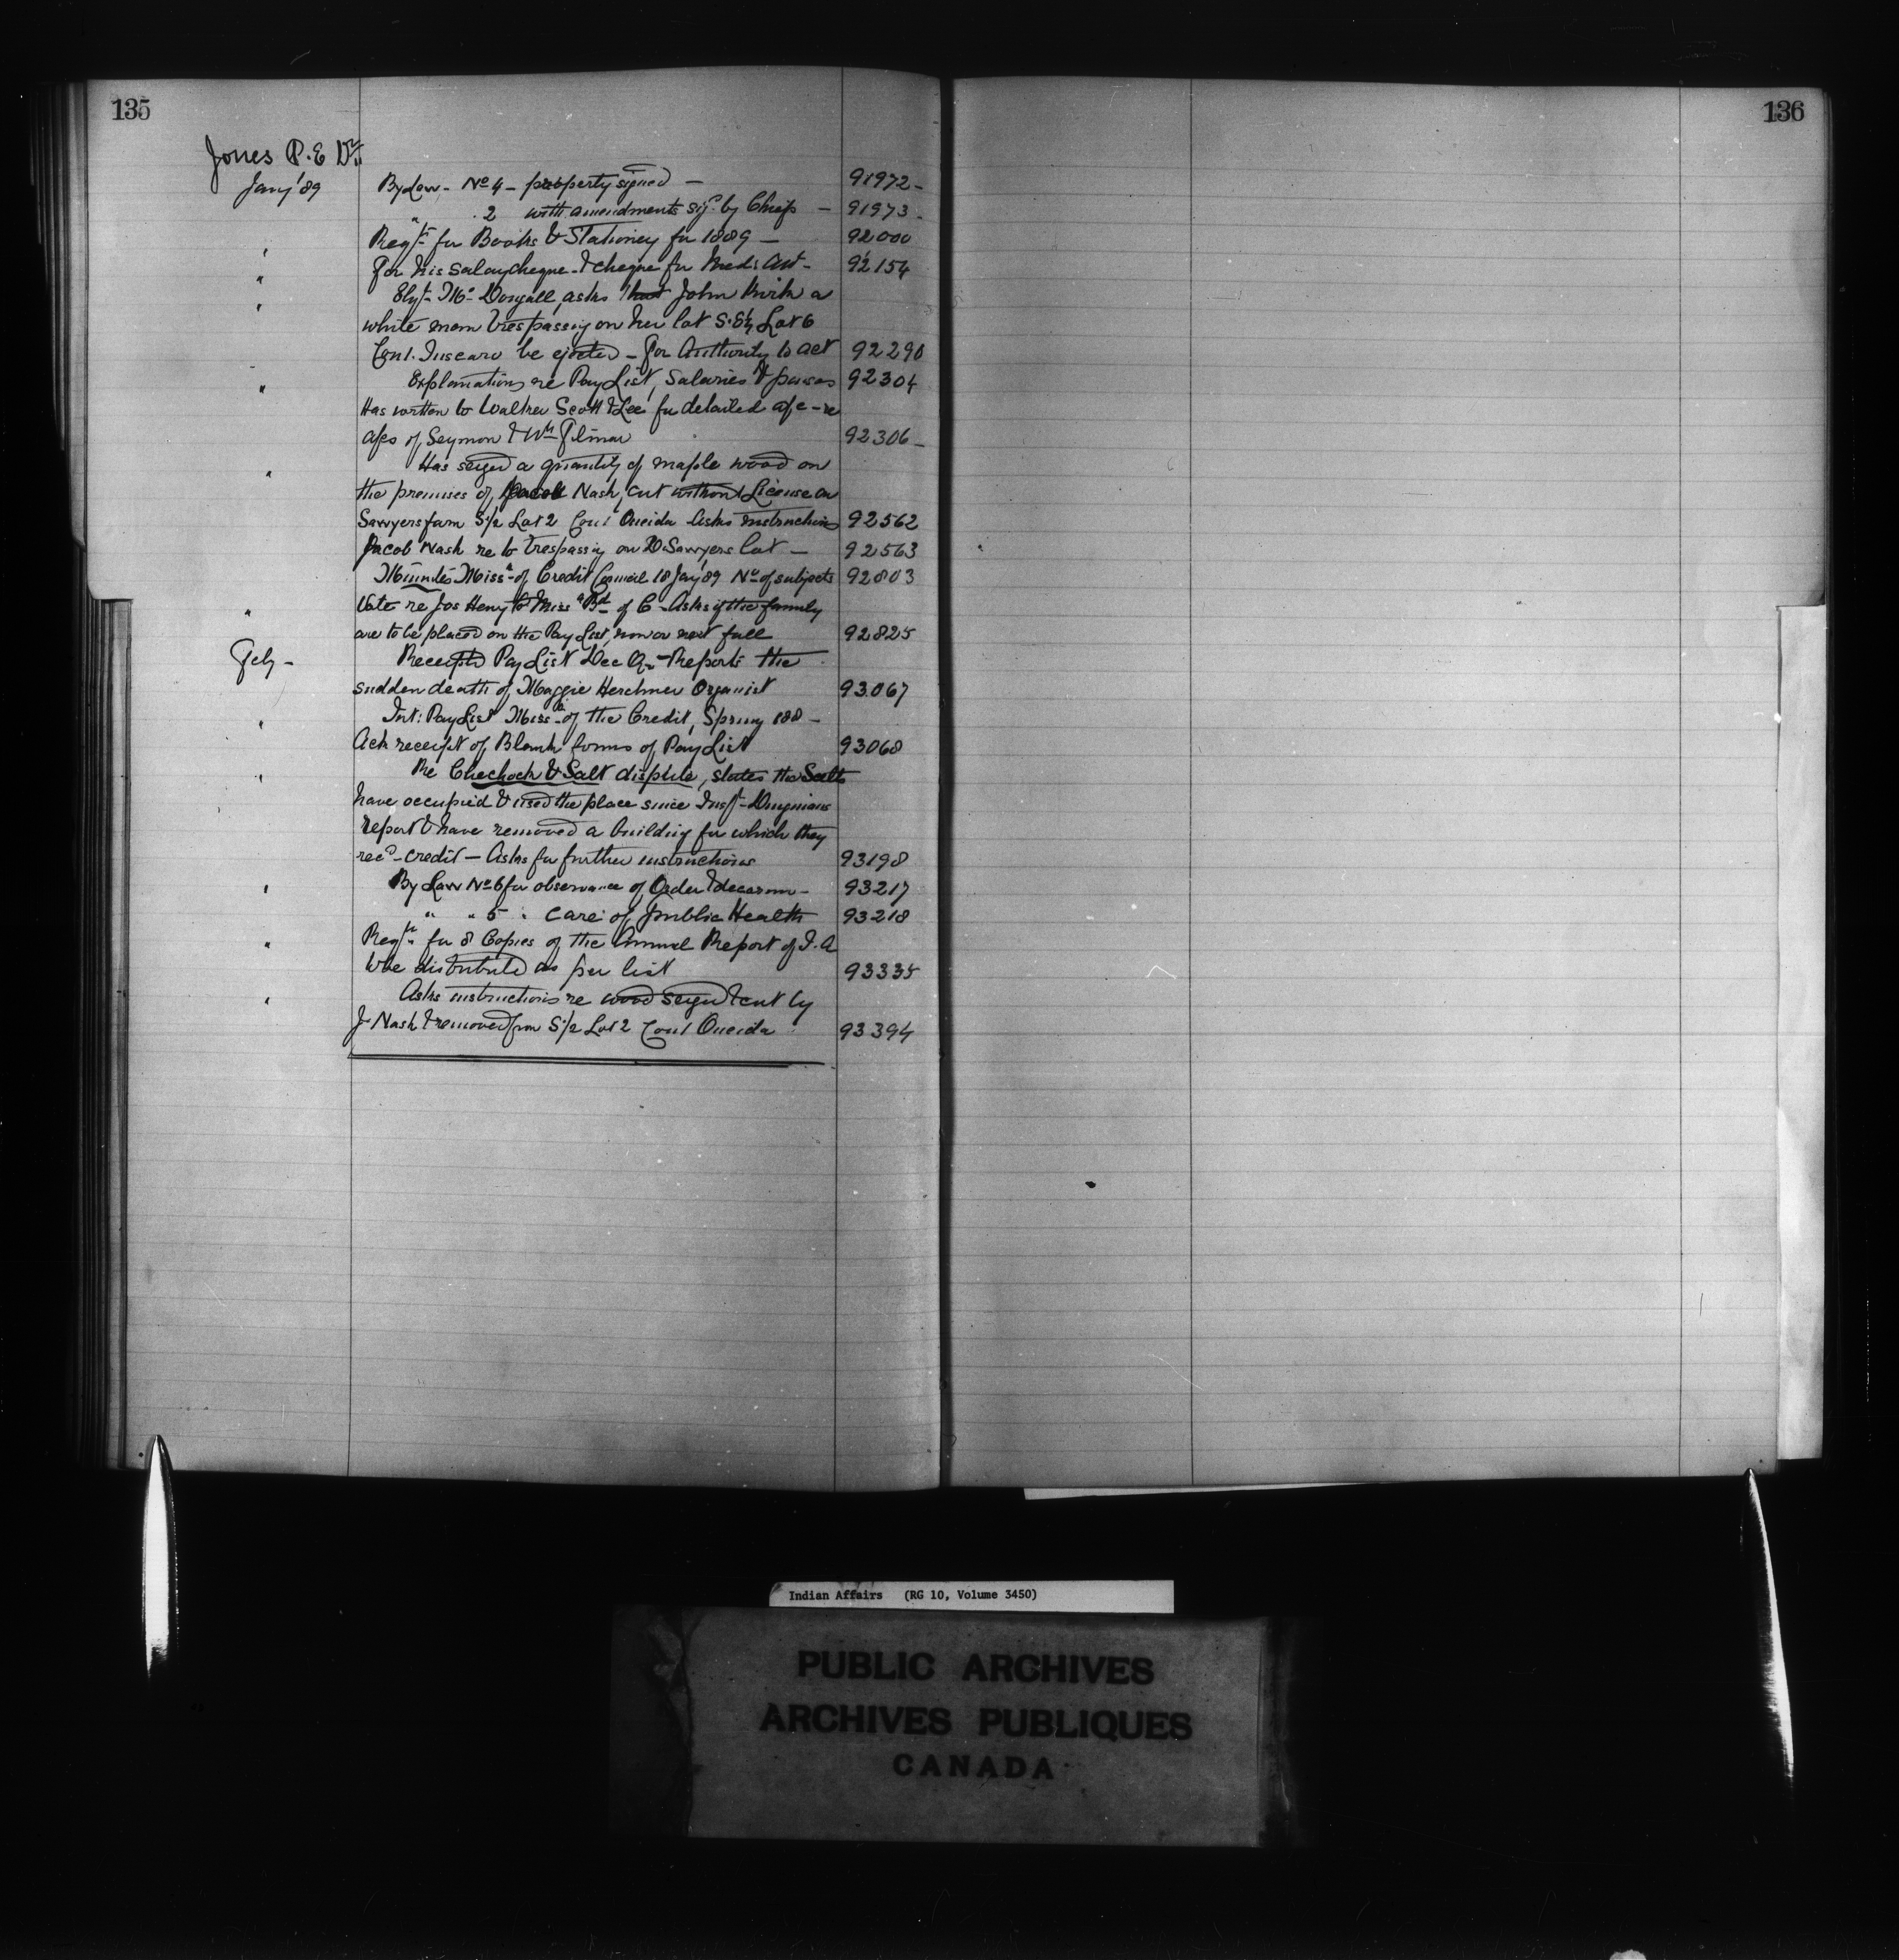 135
136
Jones P. E Dr.
Jany '89 By Law - No 4 - properly signed - 91972 -
" 2 with amendments sigd by Chiefs - 91973 -
" Reqsn for Books & Stationery for 1889 - 92000
" For his salary cheque & cheque for Medl Att - 92154
" Elizth McDougall, asks that John Kirk a
white man trespassing on her lot S.E¼ Lot 6
Con 1. Tuscaro be ejected - For Authority to act 92290
" Explanations re Pay List, Salaries & 92304
Has written to Walker Scott & Lee for detailed a/c - re
a/cs of Seymour & Wm Filman 92306 -
" Has seized a quantity of maple wood on
the premises of Jacob Nash, cut without License on
Sawyers farm S½ Lot 2 Con 1 Oneida Asks instructions 92562
Jacob Nash re to trespassing on D Sawyers lot - 92563
Minutes Missa of Credit Council 18 Jany '89 No of subjects 92803
" Vote re Jos Henry to Missa Bd of C - Asks if the family
are to be placed on the Pay List, now or next fall 92825
Feby - Receipted Pay List Dec Qr - Reports the
sudden death of Maggie Herchmer Organist 93067
" Int: Pay List Missa of the Credit, Spring 188 -
Ack receipt of Blank forms of Pay List 93068
" Re Chechock & Salt dispute, states the Salts
have occupied & used the place since Inspr Dingmans
report & have removed a building for which they
recd credit - Asks for further instructions 93198
" By Law No 6 for observance of Order & decorum - 93217
" " 5 " care of public Health 93218
" Reqsn for 8 Copies of the Annual Report of I. A
to be distributed as per list 93335
" Asks instructions re wood seized & cut by
J Nash & removed from S½ Lot 2 Con 1 Oneida 93394
Indian Affairs (RG 10, Volume 3450)
PUBLIC ARCHIVES
ARCHIVES PUBLIQUES
CANADA